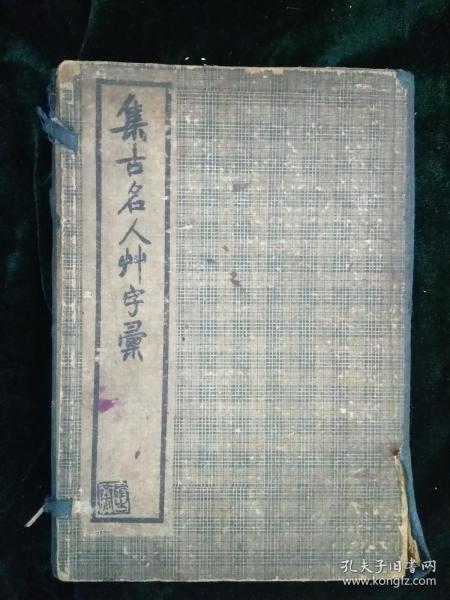 集古名人艸字彙
孔夫子旧书网
www.kongfz.com